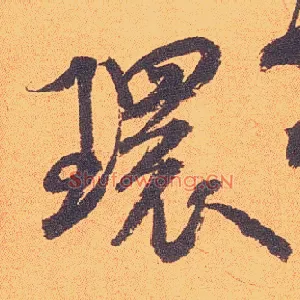 環
Shufawang.CN